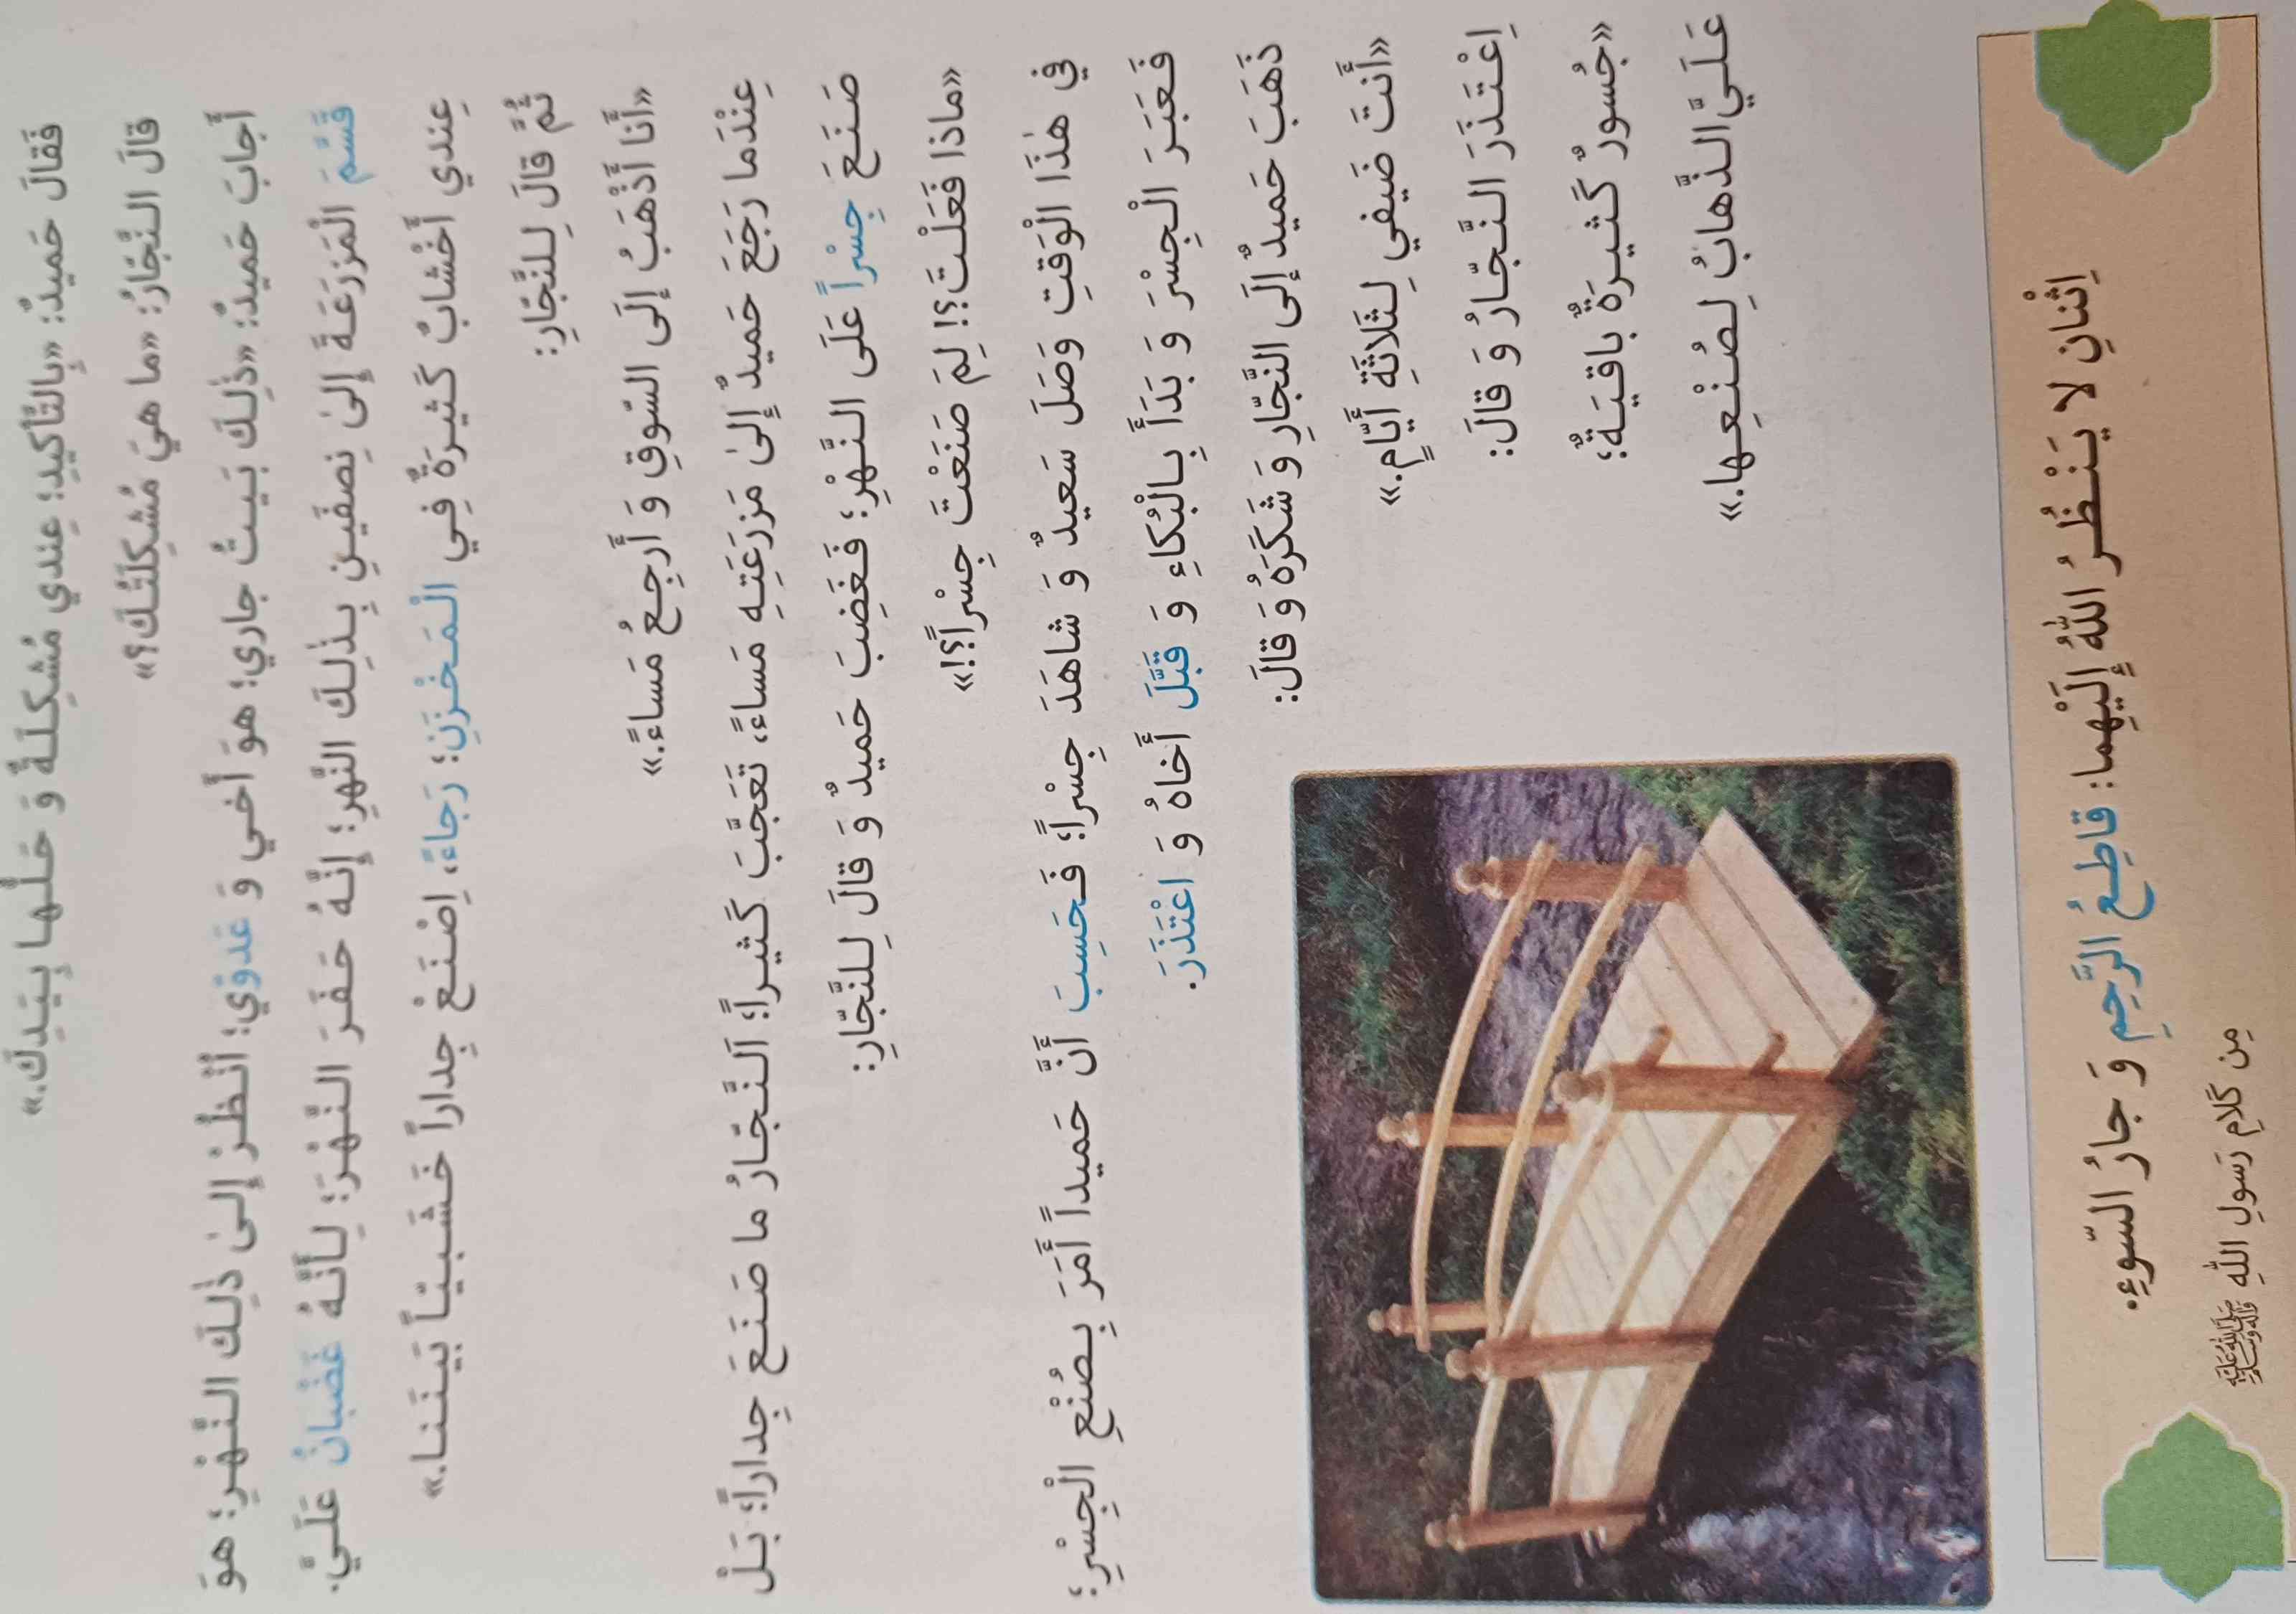 فَقالَ حَميدٌ: «بِالتَّأكيدِ؛ عِندي مُشكِلَةٌ وَ حَلُّها بِيَدِكَ.»
قالَ النَّجّارُ: «ما هيَ مُشكِلَتُكَ؟»
أَجابَ حَميدٌ: «ذٰلِكَ بَيتُ جاري؛ هوَ أَخي وَ عَدوّي؛ اُنْظُرْ إلىٰ ذٰلِكَ النَّهْرِ؛ هوَ
قَسَّمَ الْمَزرَعَةَ إلىٰ نِصفَينِ بِذٰلِكَ النَّهرِ؛ إنَّهُ حَفَرَ النَّهْرَ؛ لِأَنَّهُ غَضْبانُ عَلَيَّ.
عِندي أَخْشابٌ كَثيرَةٌ فِي الْمَخْزَنِ؛ رَجاءً، اِصْنَعْ جِداراً خَشَبيّاً بَينَنا.»
ثُمَّ قالَ لِلنَّجّارِ:
«أَنَا أَذْهَبُ إلَى السّوقِ وَ أَرجِعُ مَساءً.»
عِنْدَما رَجَعَ حَميدٌ إلىٰ مَزرَعَتِهِ مَساءً، تَعَجَّبَ كَثيراً؛ اَلنَّجّارُ ما صَنَعَ جِداراً؛ بَلْ
صَنَعَ جِسْراً عَلَى النَّهْرِ؛ فَغَضِبَ حَميدٌ وَ قالَ لِلنَّجّارِ:
«ماذا فَعَلْتَ؟! لِمَ صَنَعْتَ جِسْراً؟!»
في هٰذَا الْوَقتِ وَصَلَ سَعيدٌ وَ شاهَدَ جِسْراً؛ فَحَسِبَ أَنَّ حَميداً أَمَرَ بِصُنْعِ الْجِسْرِ؛
فَعَبَرَ الْجِسْرَ وَ بَدَأَ بِالْبُكاءِ وَ قَبَّلَ أَخاهُ وَ اعْتَذَرَ.
ذَهَبَ حَميدٌ إلَى النَّجّارِ وَ شَكَرَهُ وَ قالَ:
«أَنتَ ضَيفي لِثَلاثَةِ أَيّامٍ.»
اِعْتَذَرَ النَّجّارُ وَ قالَ:
«جُسورٌ كَثيرَةٌ باقيَةٌ؛
عَلَيَّ الذَّهابُ لِصُنْعِها.»
اِثْنانِ لا يَنْظُرُ اللّٰهُ إلَيْهِما: قاطِعُ الرَّحِمِ وَ جارُ السّوءِ.
مِن كَلامِ رَسولِ اللّٰهِ ﷺ